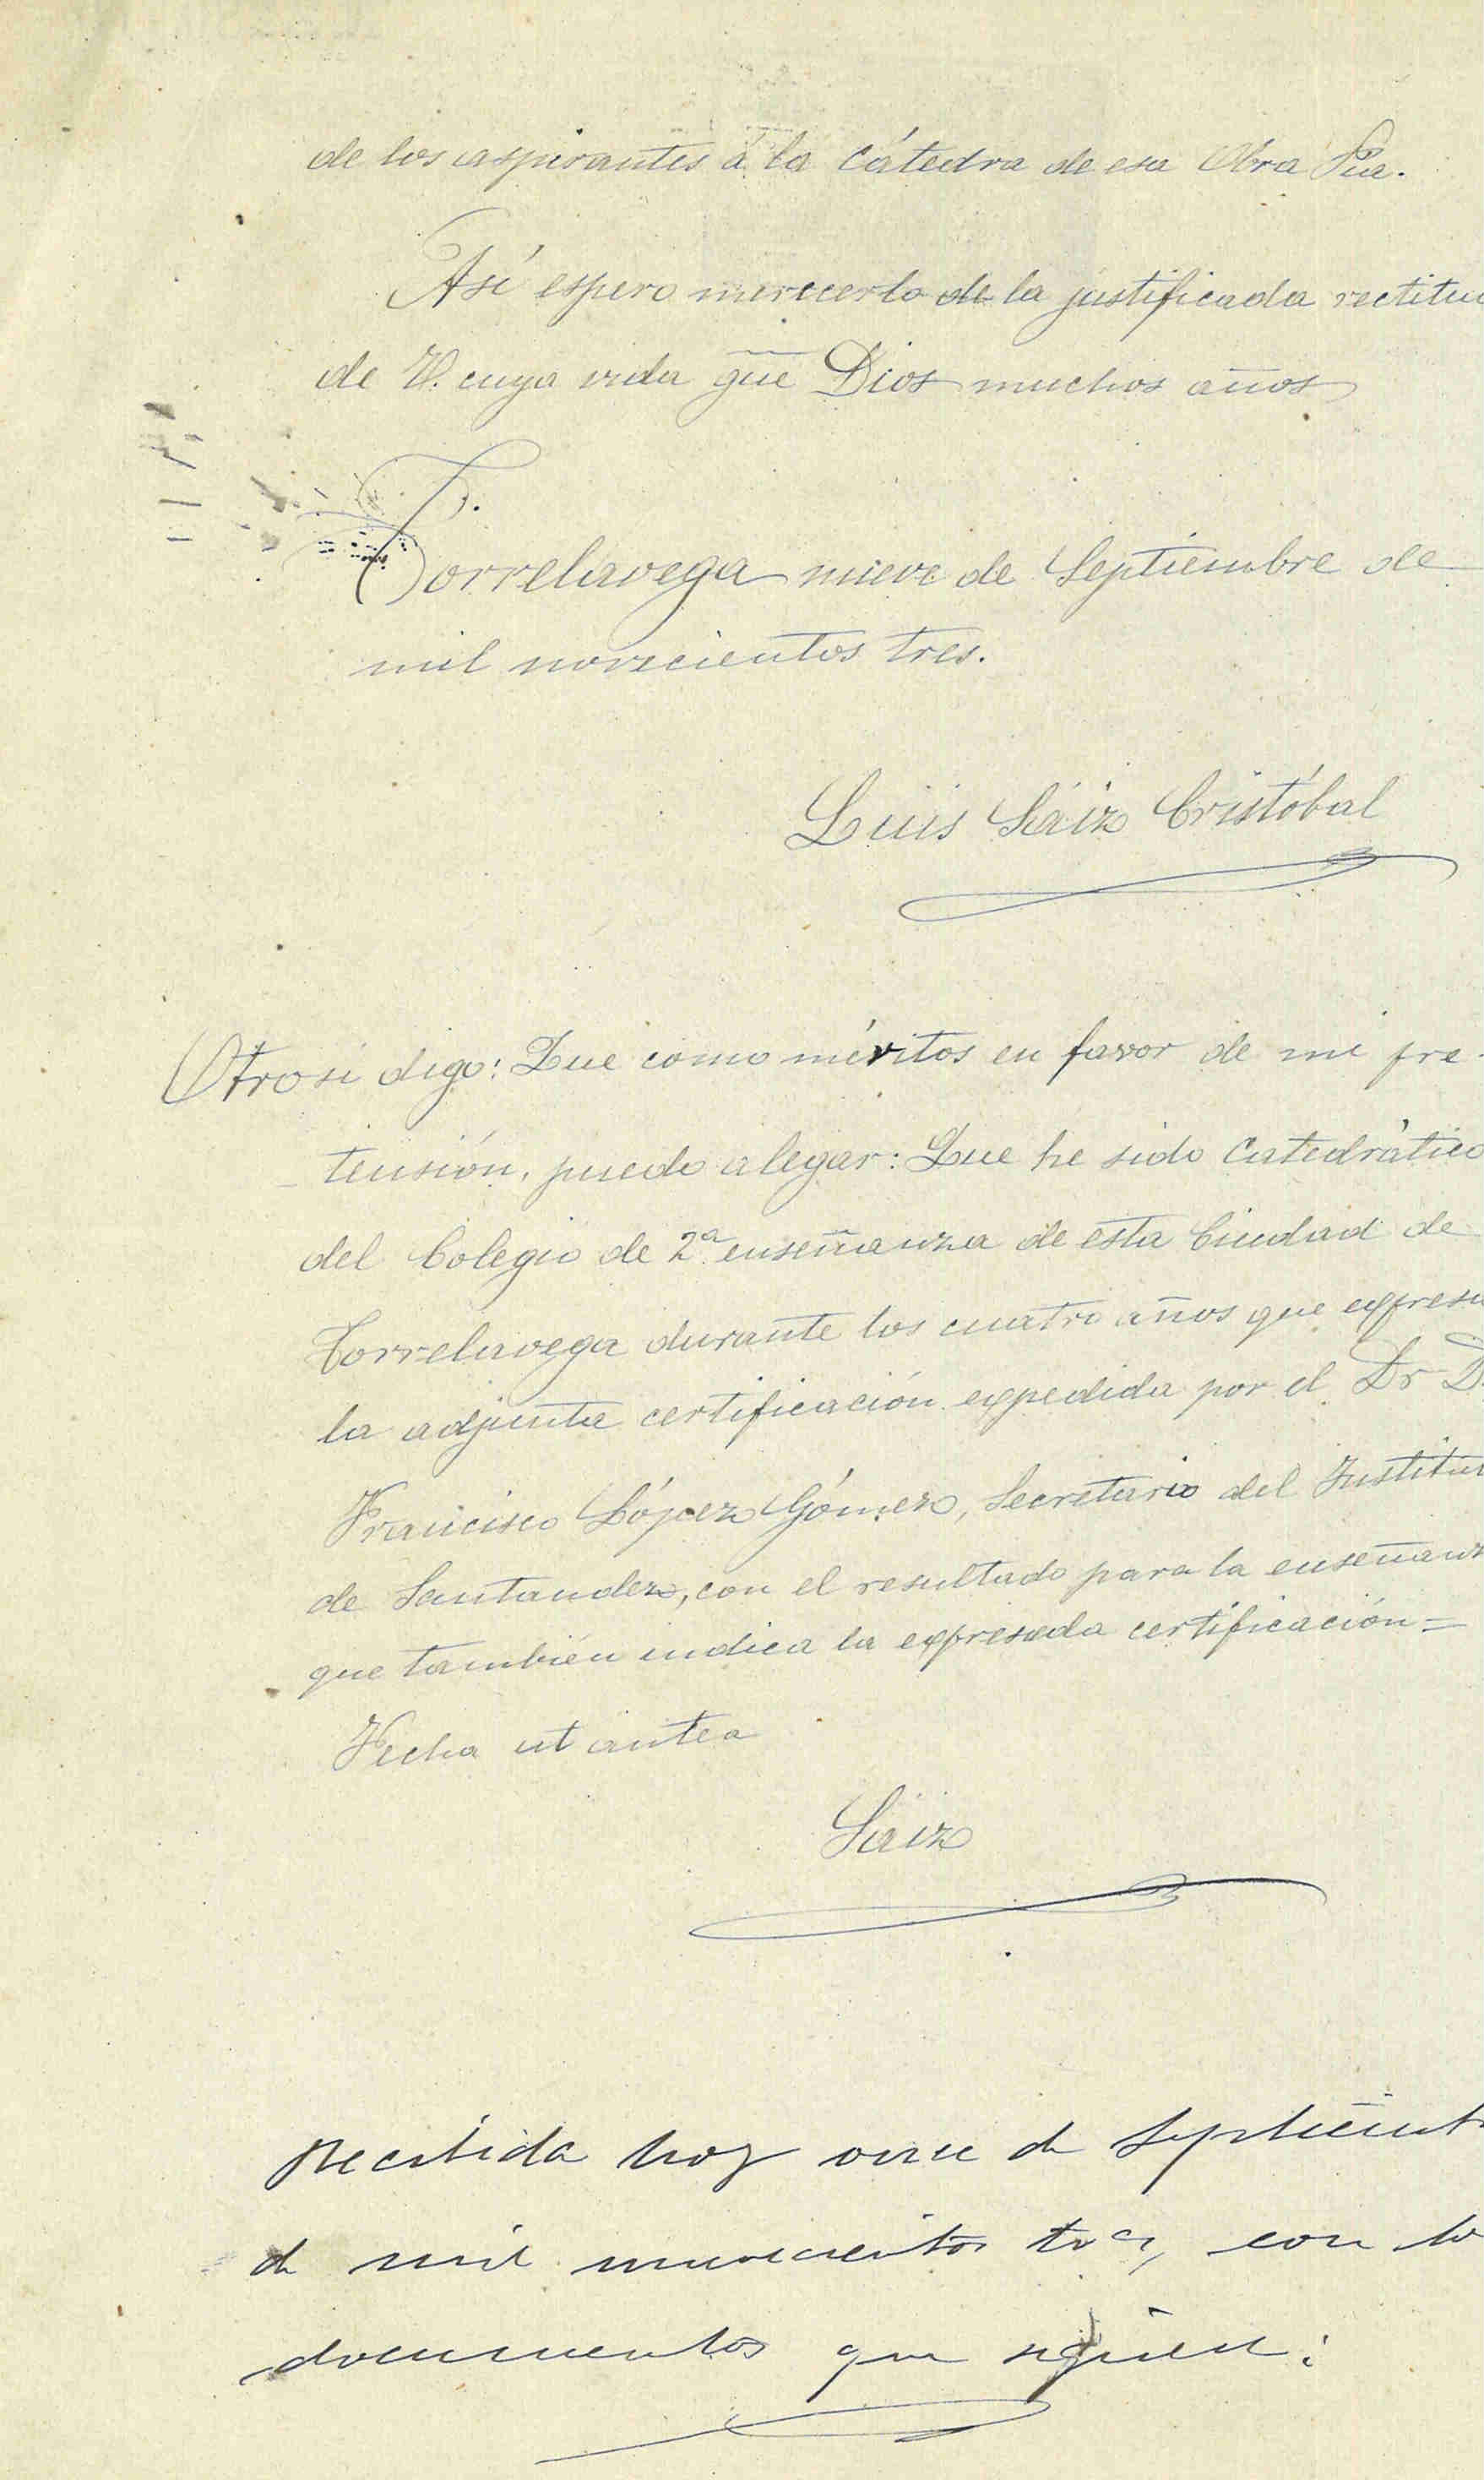 de los aspirantes á la Cátedra de esa Obra Pia.
Así espero merecerlo de la justificada rectitu
de V. cuya vida gũe Dios muchos años
Torrelavega nueve de Septiembre de
mil novecientos tres.
Luis Sáiz Cristóbal
Otrosi digo: Que como méritos en favor de mi pre-
tensión, puedo alegar: Que he sido Catedrático
del Colegio de 2ª enseñanza de esta Ciudad de
Torrelavega durante los cuatro años que expresa
la adjunta certificación expedida por el Dr D
Francisco López Gómez, Secretario del Institut
de Santander, con el resultado para la enseñanz
que también indica la expresada certificación=
Fecha ut antea
Sáiz
Recibida hoy once de Septiemb
de mil novecientos tres, con lo
documentos que siguen: